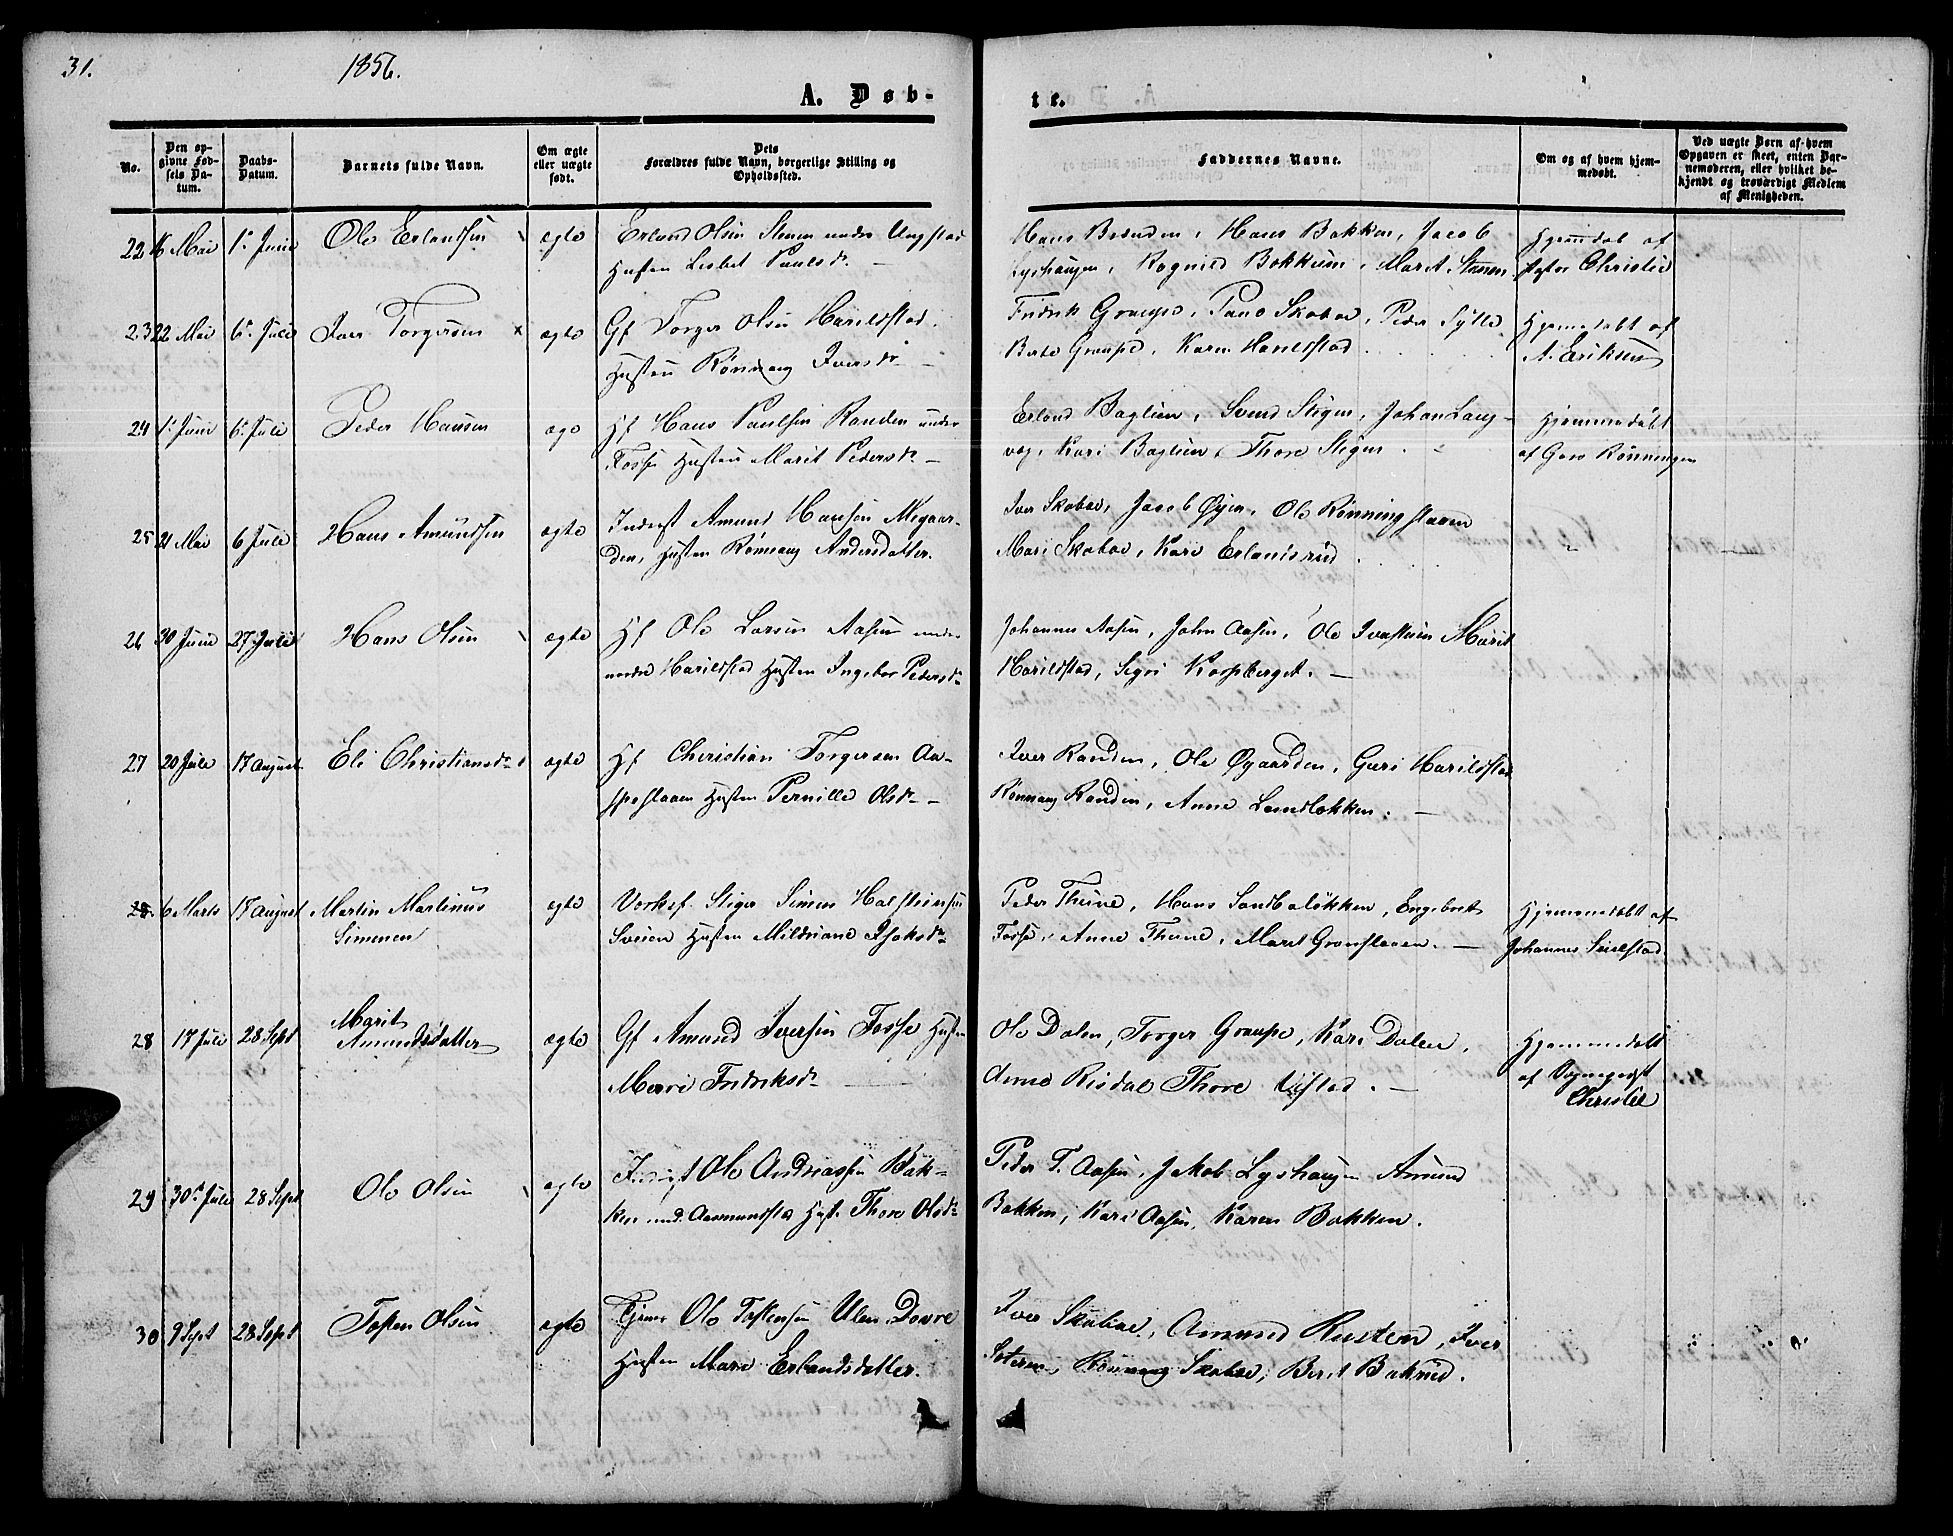 31.
1856.
A. Døb-
te.
No.
Den op-
givne Fød-
sels Da-
tum.
Daabs-
Datum.
Barnets fulde Navn.
Om ægte
eller uægte
født.
Dets
Forældres fulde Navn, borgerlige Stilling og
Opholdssted.
Faddernes Navne.
Om og af hvem hjem-
medøbt.
Ved uægte Børn af hvem
Opgaven er skeet, enten Bar-
nemoderen, eller hvilket be-
kjendt og troværdigt Medlem
af Menigheden.
22 16 Mai 1e Juni Ole Erlandsen ægte Erland Olsen Stenen under
Husten Lisbet Paulsdr
Hans Brenden, Hans Bakken, Jacob
Lyshaugen, Ragnild Bakken, Marit Stenen
Hjemdøbt af
Pastor Christie
23 22 Mai 6e Juli Iver Torgersen x ægte Gf Torger Olsen Harildstad.
Husten Rønnaug Iversdr
Fredrik Graupe, Paul Skabae, Peder Sylte
Berte Graupe, Karen Harildstad
Hjemmedøbt af
A. Eriksen
24 1e Juni 6e Juli Peder Hansen ægte Hf Hans Paulsen Randen under
Fosse Husten Marit Pedersdr
Erland Baglien, Svend Stigen, Johan Lang-
vag, Kari Baglien, Thore Stigen
Hjemmedøbt
af Guro Rønningen
25 21 Mai 6 Juli Hans Amundsen ægte Inderst Amund Hansen Megaar-
den, Husten Rønnaug Andersdatter.
Iver Skabae, Jacob Øyen, Ole Rønningslaaen
Mari Skabae, Kari Erlandsrud
26 30 Juni 27 Juli Hans Olsen ægte Hf Ole Larsen Aasen under
nordre Harildstad Husten Ingebor Pedersdr
Johannes Aasen, John Aasen, Ole Marit
Harildstad, Sigri Korpberget.
27 20 Juli 17 August Eli Christiansdr ægte Hf Christian Torgersen
Husten Pernille Olsdr
Iver Randen, Ole Øygaarden, Guri Harildstad
Rønnaug Randen, Anne Lundløkken.
28. 6 Marts 17 August Martin Martinus
Simensen
ægte Stiger Simen Halsteinsen
Sveen Husten Mildriane Isaksdr
Peder Thune, Hans Sandbuløkken, Engebret
Fosse, Anne Thune, Marit Grønslaaen.
Hjemmedøbt af
Johannes Seielstad
28 17 Juli 28 Sept Marit
Amundsdatter
ægte Gf Amund Iversen Fosse Husten
Marie Fredriksdr
Ole Dalen, Torger Graupe, Kari Dalen,
Anne Risdal Thore Ulstad.
Hjemmedøbt
af Sognepræst
Christie
29 30e Juli 28 Sept Ole Olsen ægte Inderst Ole Andreassen Bak-
ken und. Aasmundstad Hust. Thore Olsdr
Peder T. Aasen, Jakob Lyshaugen Amund
Bakken, Kari Aasen, Karen Bakken.
30 9 Sept 28 Sept Tosten Olsen ægte Tjener Ole Tostensen Ulen Dovre
Husten Mari Erlandsdatter.
Iver Skabae, Amund Rusten, Iver
Rønnaug Skabae, Berit Bakrud.